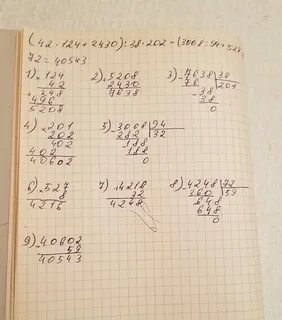 (42·124+2430):38·202-(3008:94+527
72=40543
1) 124 2) 5208 3) 7638 38
42 2430 76 201
+ 248 7638 -38
496 38
5208 0
4) 201 5) 3008 94
202 282 32
402 -188
402 188
40602 0
6) 527 7) 4216 8) 4248 72
8 32 360 59
4216 4248 -648
648
0
9) 40602
59
40543